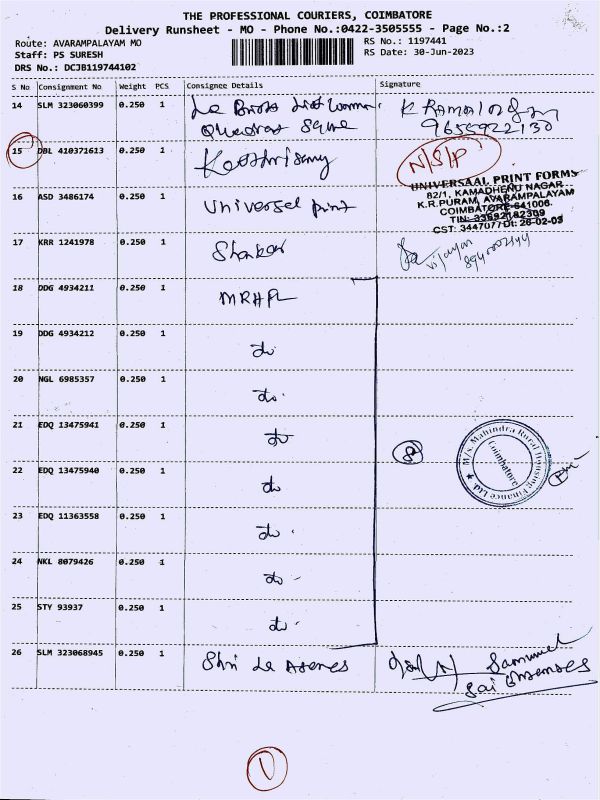 THE PROFESSIONAL COURIERS, COIMBATORE
Delivery Runsheet - MO - Phone No.:0422-3505555 - Page No.:2
Route: AVARAMPALAYAM MO
RS No.: 1197441
Staff: PS SURESH
RS Date: 30-Jun-2023
DRS No.: DCJB119744102
S No Consignment No Weight PCS Consignee Details Signature
14 SLM 323060399 0.250 1
Square
9655922130
15 DBL 410371613 0.250 1
N/S/P
16 ASD 3486174 0.250 1 Universel print
UNIVERSAAL PRINT FORMS
82/1, KAMADHENU NAGAR
K.R.PURAM, AVARAMPALAYAM
COIMBATORE-641006.
TIN: 33692182309
CST: 344707/Dt: 26-02-03
17 KRR 1241978 0.250 1 Shankar
vijayan
18 DDG 4934211 0.250 1 MRHFL
19 DDG 4934212 0.250 1 do
20 NGL 6985357 0.250 1 do.
21 EDQ 13475941 0.250 1 do
M/s. Mahindra Rural Housing Finance Ltd.
Coimbatore
22 EDQ 13475940 0.250 1 do
23 EDQ 11363558 0.250 1 do.
24 NKL 8079426 0.250 1 do.
25 STY 93937 0.250 1 do.
26 SLM 323068945 0.250 1 Shri